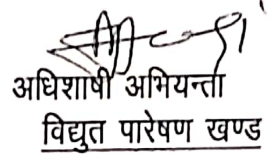 अधिशाषी अभियन्ता
विद्युत पारेषण खण्ड